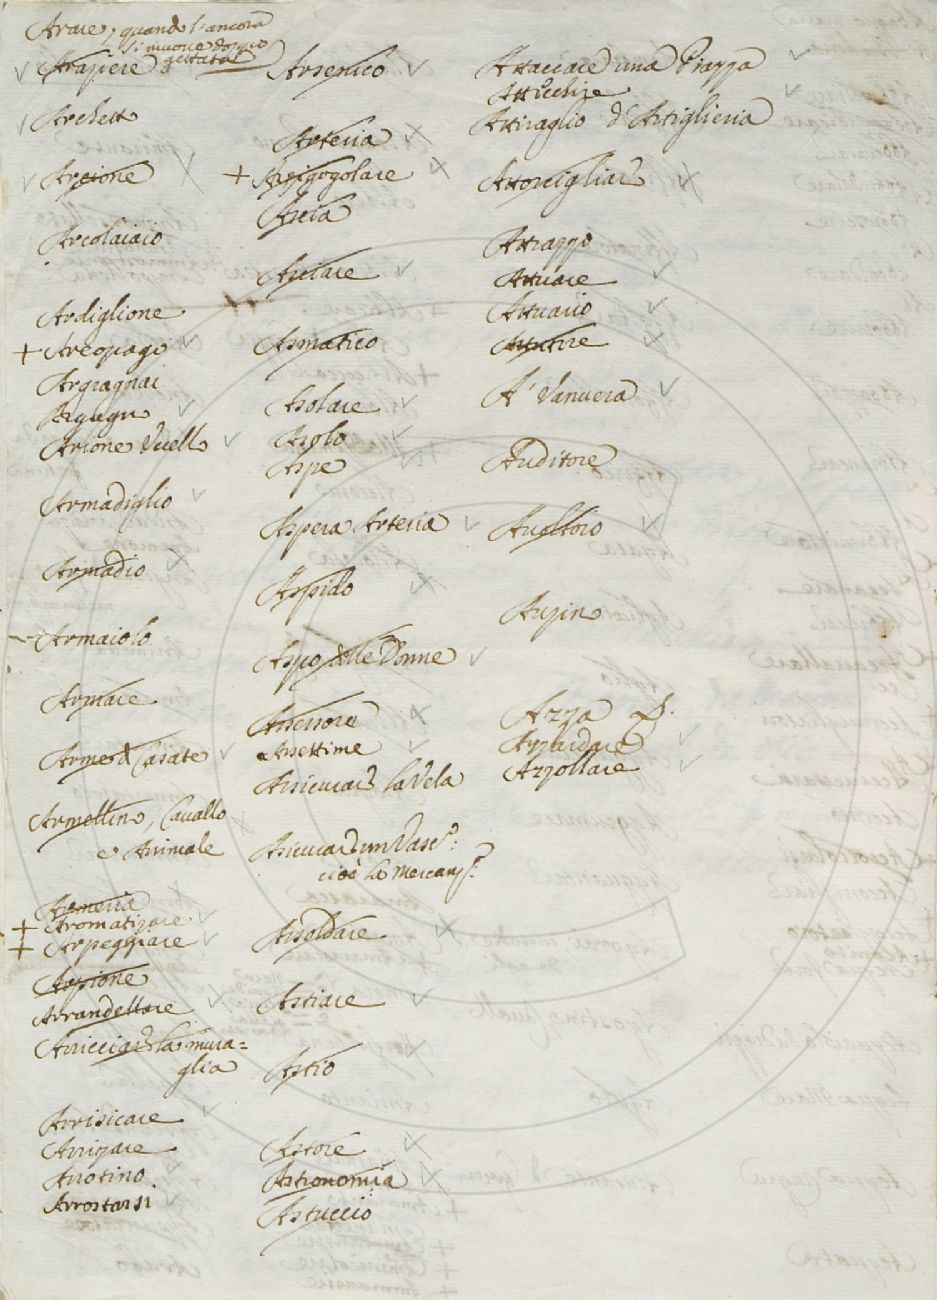 Arare, quando l'ancora
si muove doppo
gettata
Arapere
Archetto
Arcione
Arcolaiaio
Ardiglione
+ Areopago
Argiagnai
Arione Ucello
Armadiglio
Armadio
Armaiolo
Armare
Arme d Casate
Armellino, Cavallo
e Animale
Armeria
+ Aromatizare
+ Arpeggiare
Arpione
Arrandellare
Arricciare la mura=
glia
Arrisicare
Arrizare
Arrotino
Arrostarsi
Arsenico
Arteria
+ Arzigogolare
Ascia
Asciare
Asmatico
Asolare
Asolo
Aspe
Aspera Arteria
Aspido
Aspo delle Donne
Assessore
Assettime
Assicurare la Vela
Asicurare un Vasc.º:
cioè la Mercanz.ª
Assoldare
Astiare
Astio
Astore
Astronomia
Astuccio
Attaccare una Piazza
Atticchire
Attiraglio d'Artiglieria
Attorcigliare
Attrazzo
Attuare
Attuario
Attutire
A' Vanvera
Auditore
Avoltoio
Azza
Azzardare
Azzollare